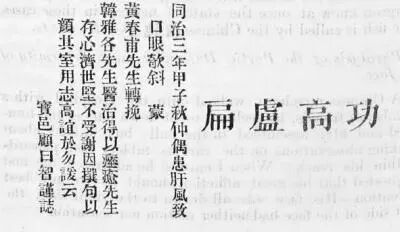 功高盧扁
同治三年甲子秋仲偶患肝風致
口眼欹斜 蒙
黃春甫先生轉挽
韓雅各先生醫治得以 先生
存心濟世堅不受謝因撰句以
顏其室用志高誼於勿諼云
寶邑顧曰智謹誌